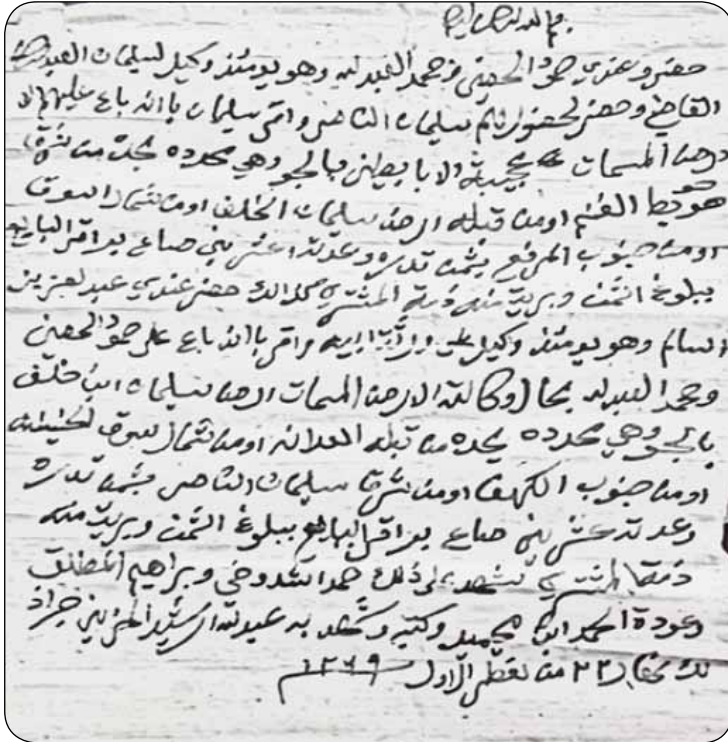 بسم الله الرحمن الرحيم
حضرو عندي حمود الحصيني وحمد العبدالله وهو يومئذ وكيل لسليمان العبد
القاضي وحضر لحضورهم سليمان الناصر واقر سليمان باانه باع عليهم الا
رضه المسمات الابا بالجو وهي محدده يحده من شرق
حويط الغنم اومن قبله ارض سليمان الخلف اومن شمال السوق
اومن جنوب المرقع بثمن قدره وعدته اعشرين صاع بر اقر البايع
ببلوغ الثمن وبريت منه ذمة المشتري كذالك حضر عندي عبدالعزيز
السالم وهو يومئذ وكيل على واقر باانه باع على حمود الحصيني
وحمد العبدالله بحال وكالته الارض المسمات ارض سليمان ابن خلف
بالجو وهي محدده يحده من قبله العدانه اومن شمال سوق
اومن جنوب الكهف اومن شرق سليمان الناصر بثمن قدره
وعدته عشرين صاع بر اقر البايع ببلوغ الثمن وبريت منه
ذمة المشتري شهد على ذلك حمد وبراهيم المطلق
وعودة الحمد ابن محيميد وكتبه وشهد به عبدالله الرشيد
٢٢ من الاول ١٣٦٩